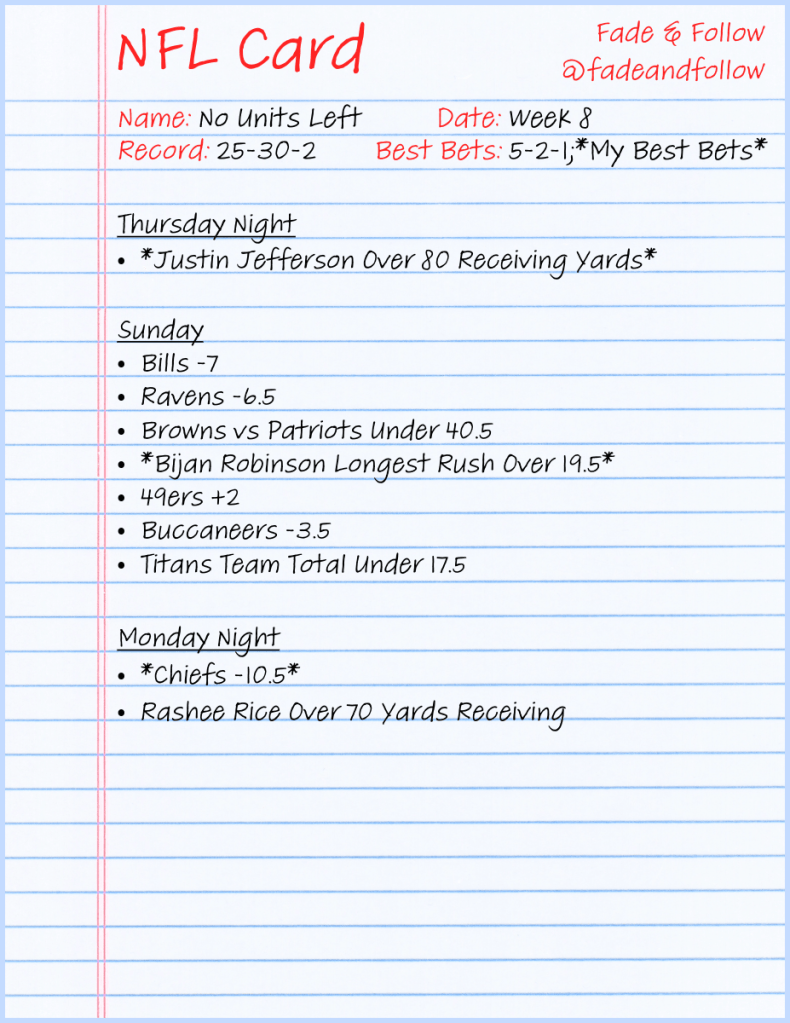 NFL Card
Fade & Follow
@fadeandfollow
Name: No Units Left Date: Week 8
Record: 25-30-2 Best Bets: 5-2-1;*My Best Bets*
Thursday Night
• *Justin Jefferson Over 80 Receiving Yards*
Sunday
• Bills -7
• Ravens -6.5
• Browns vs Patriots Under 40.5
• *Bijan Robinson Longest Rush Over 19.5*
• 49ers +2
• Buccaneers -3.5
• Titans Team Total Under 17.5
Monday Night
• *Chiefs -10.5*
• Rashee Rice Over 70 Yards Receiving